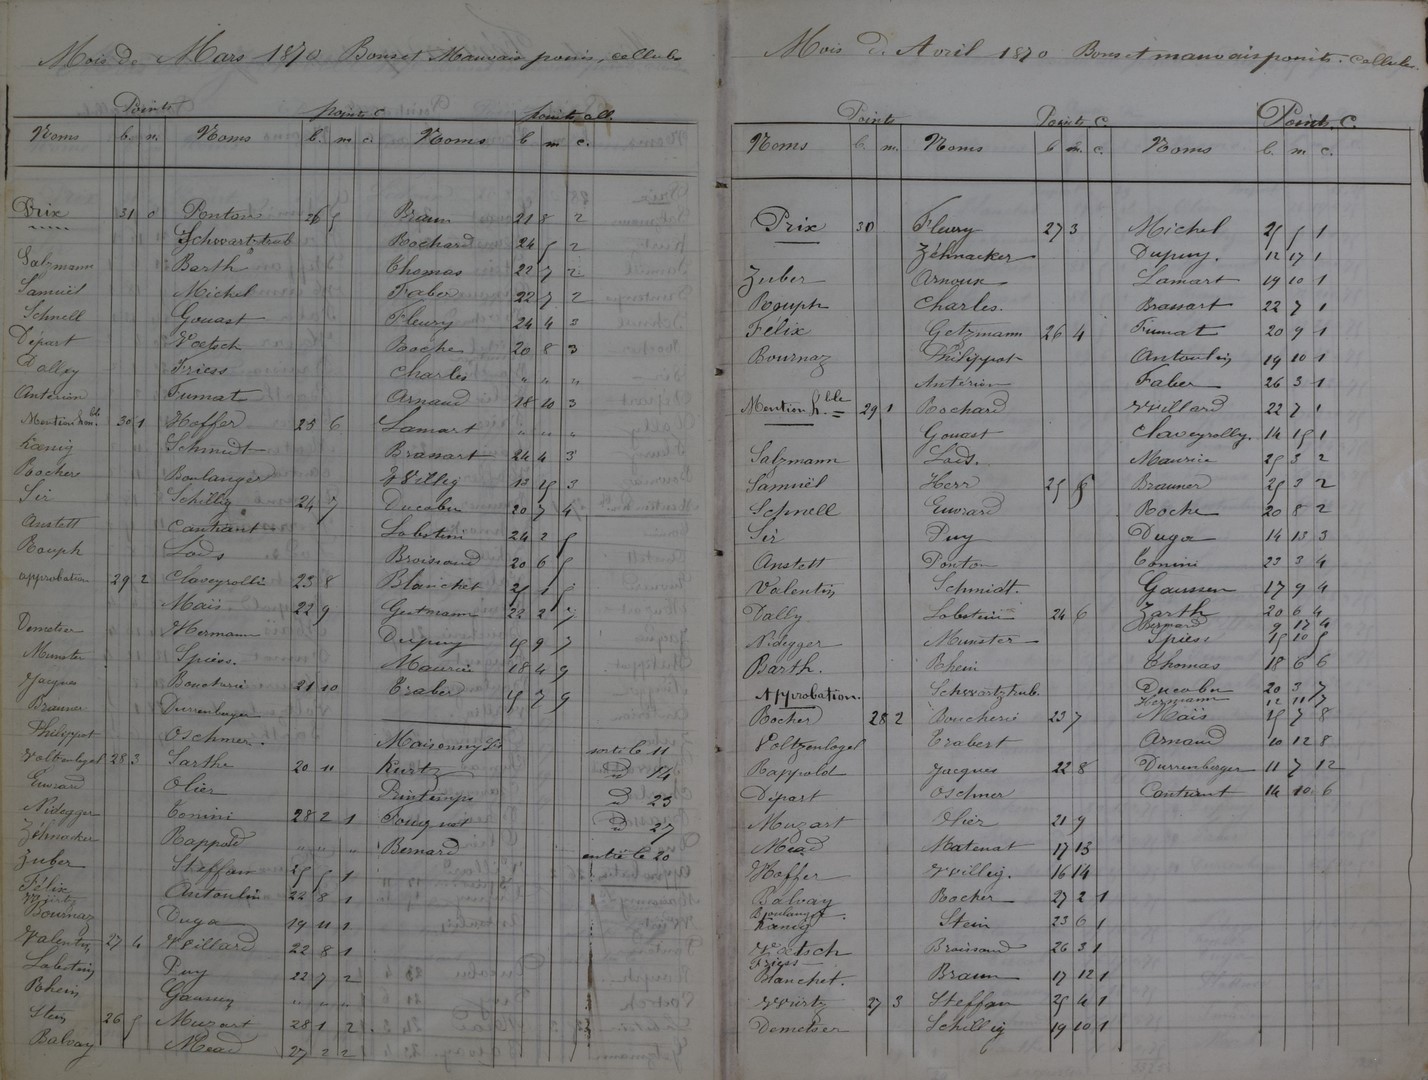 Mois de Mars 1870 Bons et Mauvais points, cellule
Points points c points cell.
Noms b. m. Noms b. m. c. Noms b m c.
Prix 31 0 Ponton 26 5 Braun 21 8 2
Schwartztrub Rochard 24 5 2
Salzmann Barth Thomas 22 7 2
Samuël Michel Faber 22 7 2
Schnell Gouast Fleury 24 4 3
Depart Voetsch Roche 20 8 3
Dalley Friess Charles " " "
Antérion Fumat Arnaud 18 10 3
Mention hon.ble 30 1 Hoffer 25 6 Lamart " " "
Kœnig Schmidt Brassart 24 4 3
Rocher Boulanger Willig 13 15 3
Sir Schillig 24 7 Ducabu 20 7 4
Anstett Contrant Lobstein 24 2 5
Rouph Lods Broissand 20 6 5
approbation 29 2 Claveyrolli 23 8 Blanchet 25 1 5
Maïs 22 9 Gertmann 22 2 7
Demetser Hermann Dupuy 15 9 7
Munster Spiess. Maurice 18 4 9
Jacques Boucherie 21 10 Traber 15 7 9
Brauner Durrenberger
Philippot Oschmer. sorti le 11
Voltzenlogel 28 3 Sarthe 20 11 Kurtz D 14
Euvrard Olier Printemps D 23
Nidegger Conini 28 2 1 D 27
Zéhnacker Rappold " " " Bernard entré le 20
Zuber Steffan 25 5 1
Félix Antoulin 22 8 1
Würtz
Bournaz Duga 19 11 1
Valentin 27 4 Willard 22 8 1
Lobstein Puy 22 7 2
Rhein Gaussen " " "
Stein 26 5 Muzart 28 1 2
Balvay Mead 27 2 2
Mois d'Avril 1870 Bons et mauvais points. cellule.
Points Points C. Points. C.
Noms b. m. Noms b m. c. Noms b. m c.
Prix 30 Fleury 27 3 Michel 25 5 1
Zéhnacker Dupuy. 12 17 1
Zuber Arnoux Lamart 19 10 1
Rouph Charles. Brassart 22 7 1
Félix Getzmann 26 4 Fumat 20 9 1
Bournaz Philippot Antoulin 19 10 1
Antérion Faber 26 3 1
Mention h.ble 29 1 Rochard Willard 22 7 1
Gouast Claveyrolly. 14 15 1
Salzmann Lods. Maurice 25 3 2
Samuël Herr 25 5 Brauner 25 3 2
Schnell Euvrard Roche 20 8 2
Sir Puy Duga 14 13 3
Anstett Ponton Conini 23 3 4
Valentin Schmidt. Gaussen 17 9 4
Dally Lobstein 24 6 Zarth 20 6 4
Bernard 9 17 4
Nidegger Munster Spiess 15 10 5
Barth. Rhein Thomas 18 6 6
Approbation. Schwartztrub. Ducabu 20 3 7
Hermann 12 11 7
Rocher 28 2 Boucherie 23 7 Maïs 15 7 8
Voltzenlogel Trabert Arnaud 10 12 8
Rappold Jacques 22 8 Durrenberger 11 7 12
Départ Oschmer Contrant 14 10 6
Muzart Olier 21 9
Mead Matenat 17 13
Hoffer Willig. 16 14
Balvay Rocher 27 2 1
Boulanger.
Kœnig Stein 23 6 1
Voetsch Broissand 26 3 1
Friess
Blanchet. Braun 17 12 1
Würtz 27 3 Steffan 25 4 1
Demetser Schillig 19 10 1